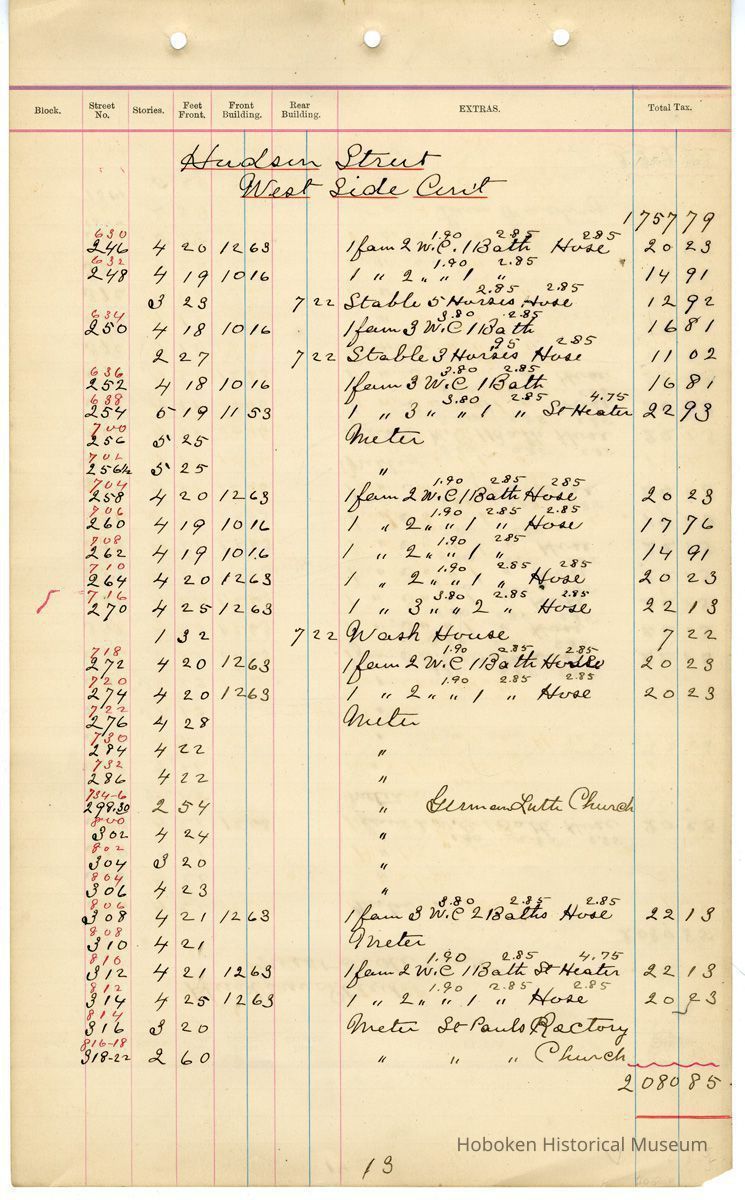 Block. Street No. Stories. Feet Front. Front Building. Rear Building. EXTRAS. Total Tax.
Hudson Street
West Side Con't
1757 79
630
1.90 2.85 2.85
246 4 20 12 63 1 fam 2 W.C. 1 Bath Hose 20 23
632
1.90 2.85
248 4 19 10 16 1 " 2 " " 1 " 14 91
2.85 2.85
3 23 7 22 Stable 5 Horses Hose 12 92
634
3.80 2.85
250 4 18 10 16 1 fam 3 W.C 1 Bath 16 81
95 2.85
2 27 7 22 Stable 3 Horses Hose 11 02
636
3.80 2.85
252 4 18 10 16 1 fam 3 W.C 1 Bath 16 81
638
3.80 2.85 4.75
254 5 19 11 53 1 " 3 " " 1 " St Heater 22 93
700
256 5 25 Meter
702
256½ 5 25 "
704
1.90 2.85 2.85
258 4 20 12 63 1 fam 2 W.C 1 Bath Hose 20 23
706
1.90 2.85 2.85
260 4 19 10 16 1 " 2 " " 1 " Hose 17 76
708
1.90 2.85
262 4 19 10 16 1 " 2 " " 1 " 14 91
710
1.90 2.85 2.85
264 4 20 12 63 1 " 2 " " 1 " Hose 20 23
716
3.80 2.85 2.85
270 4 25 12 63 1 " 3 " " 2 " Hose 22 13
1 32 7 22 Wash House 7 22
718
1.90 2.85 2.85
272 4 20 12 63 1 fam 2 W.C 1 Bath Hose 20 23
720
1.90 2.85 2.85
274 4 20 12 63 1 " 2 " " 1 " Hose 20 23
722
276 4 28 Meter
730
284 4 22 "
732
286 4 22 "
734-6
298.30 2 54 " German Luth Church
800
302 4 24 "
802
304 3 20 "
804
306 4 23 "
806
3.80 2.85 2.85
308 4 21 12 63 1 fam 3 W.C 2 Baths Hose 22 13
808
310 4 21 Meter
810
1.90 2.85 4.75
312 4 21 12 63 1 fam 2 W.C 1 Bath St Heater 22 13
812
1.90 2.85 2.85
314 4 25 12 63 1 " 2 " " 1 " Hose 20 23
814
316 3 20 Meter St Pauls Rectory
816-18
318-22 2 60 " " " Church
2080 85
Hoboken Historical Museum
13